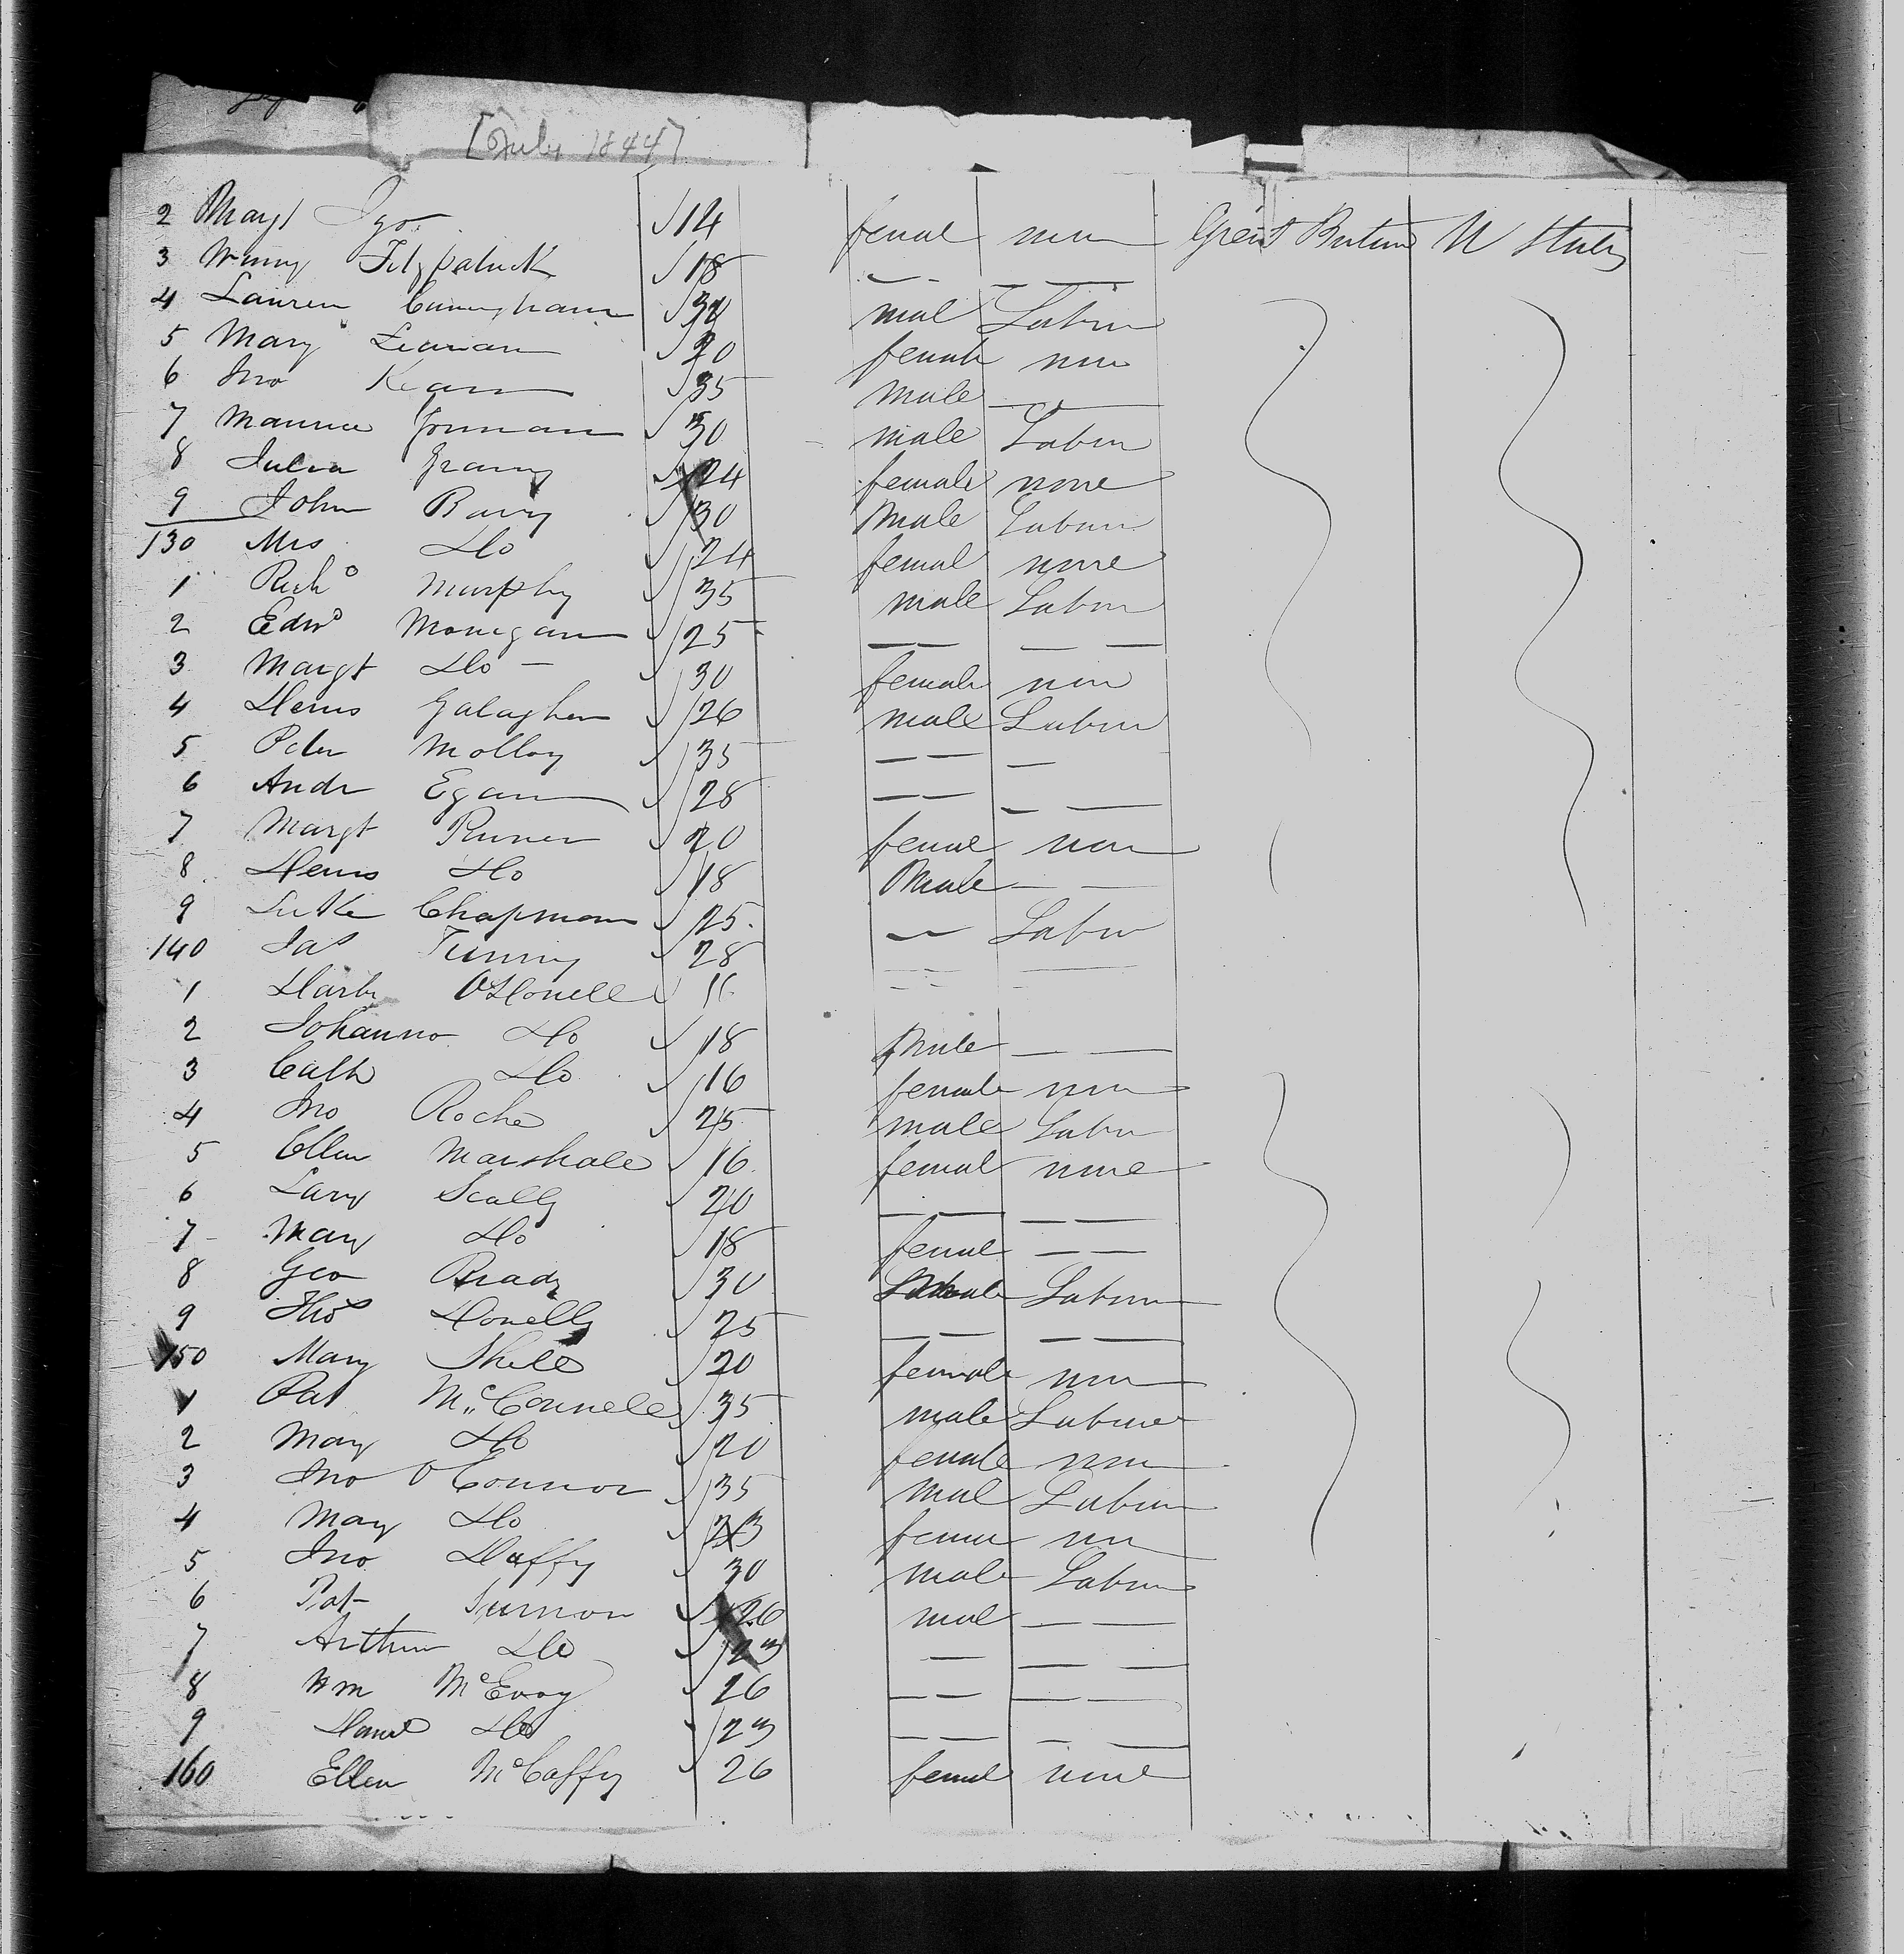 [July 1844]
2 Margt Igo 14 femal non Great Britain U States
3 Winny Fitzpatrick 18 — — —
4 Lauren Cuningham 30 mal Labor
5 Mary 20 female non
6 Jno Kean 35 male —
7 Maurice Gorman 30 male Labor
8 Julia Grany 24 female none
9 John Barry 30 Male Labour
130 Mrs Do 24 femal none
1 Richd Murphy 35 male Labor
2 Edwd Monigan 25 — — — —
3 Margt Do — 30 female non
4 Denis Galagher 26 male Labor
5 Peter Molloy 35 — — —
6 Andr Egan 28 — — — —
7 Margt 20 femal non
8 Denis Do 18 Male — —
9 Luke Chapman 25 — Labor
140 Jas Tunny 28 — — —
1 Darby O'Donell 16 — — —
2 Johanna Do 18 Male — —
3 Cath Do 16 female non
4 Jno Roche 25 male Labor
5 Ellen Marshale 16 femal none
6 Lary Scally 20 — — — —
7 Mary Do 18 femal — —
8 Geo Brady 30 Male Labour
9 Thos Donelly 25 — — — —
150 Mary Shell 20 female non
1 Pat McConnell 35 male Labour
2 Mary Do 20 female non
3 Jno O Connor 35 mal Labour
4 Mary Do 23 female non
5 Jno Daffy 30 male Labour
6 Pat 26 mal — —
7 Arthur Do 23 — — —
8 Wm McEvoy 26 — — — —
9 Danl Do 23 — — — —
160 Ellen McCaffry 26 femal none